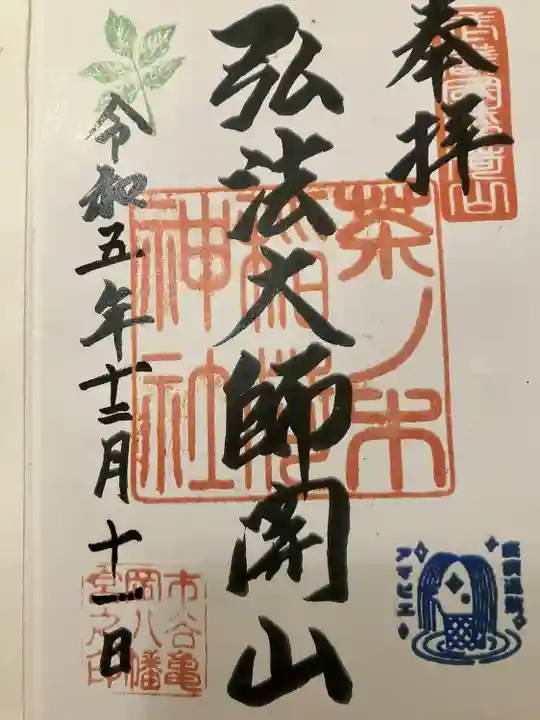 奉拝
弘法大師開山
令和五年十二月十一日
茶ノ木
稲荷
神社
市谷亀
岡八幡
宮之印
アマビエ